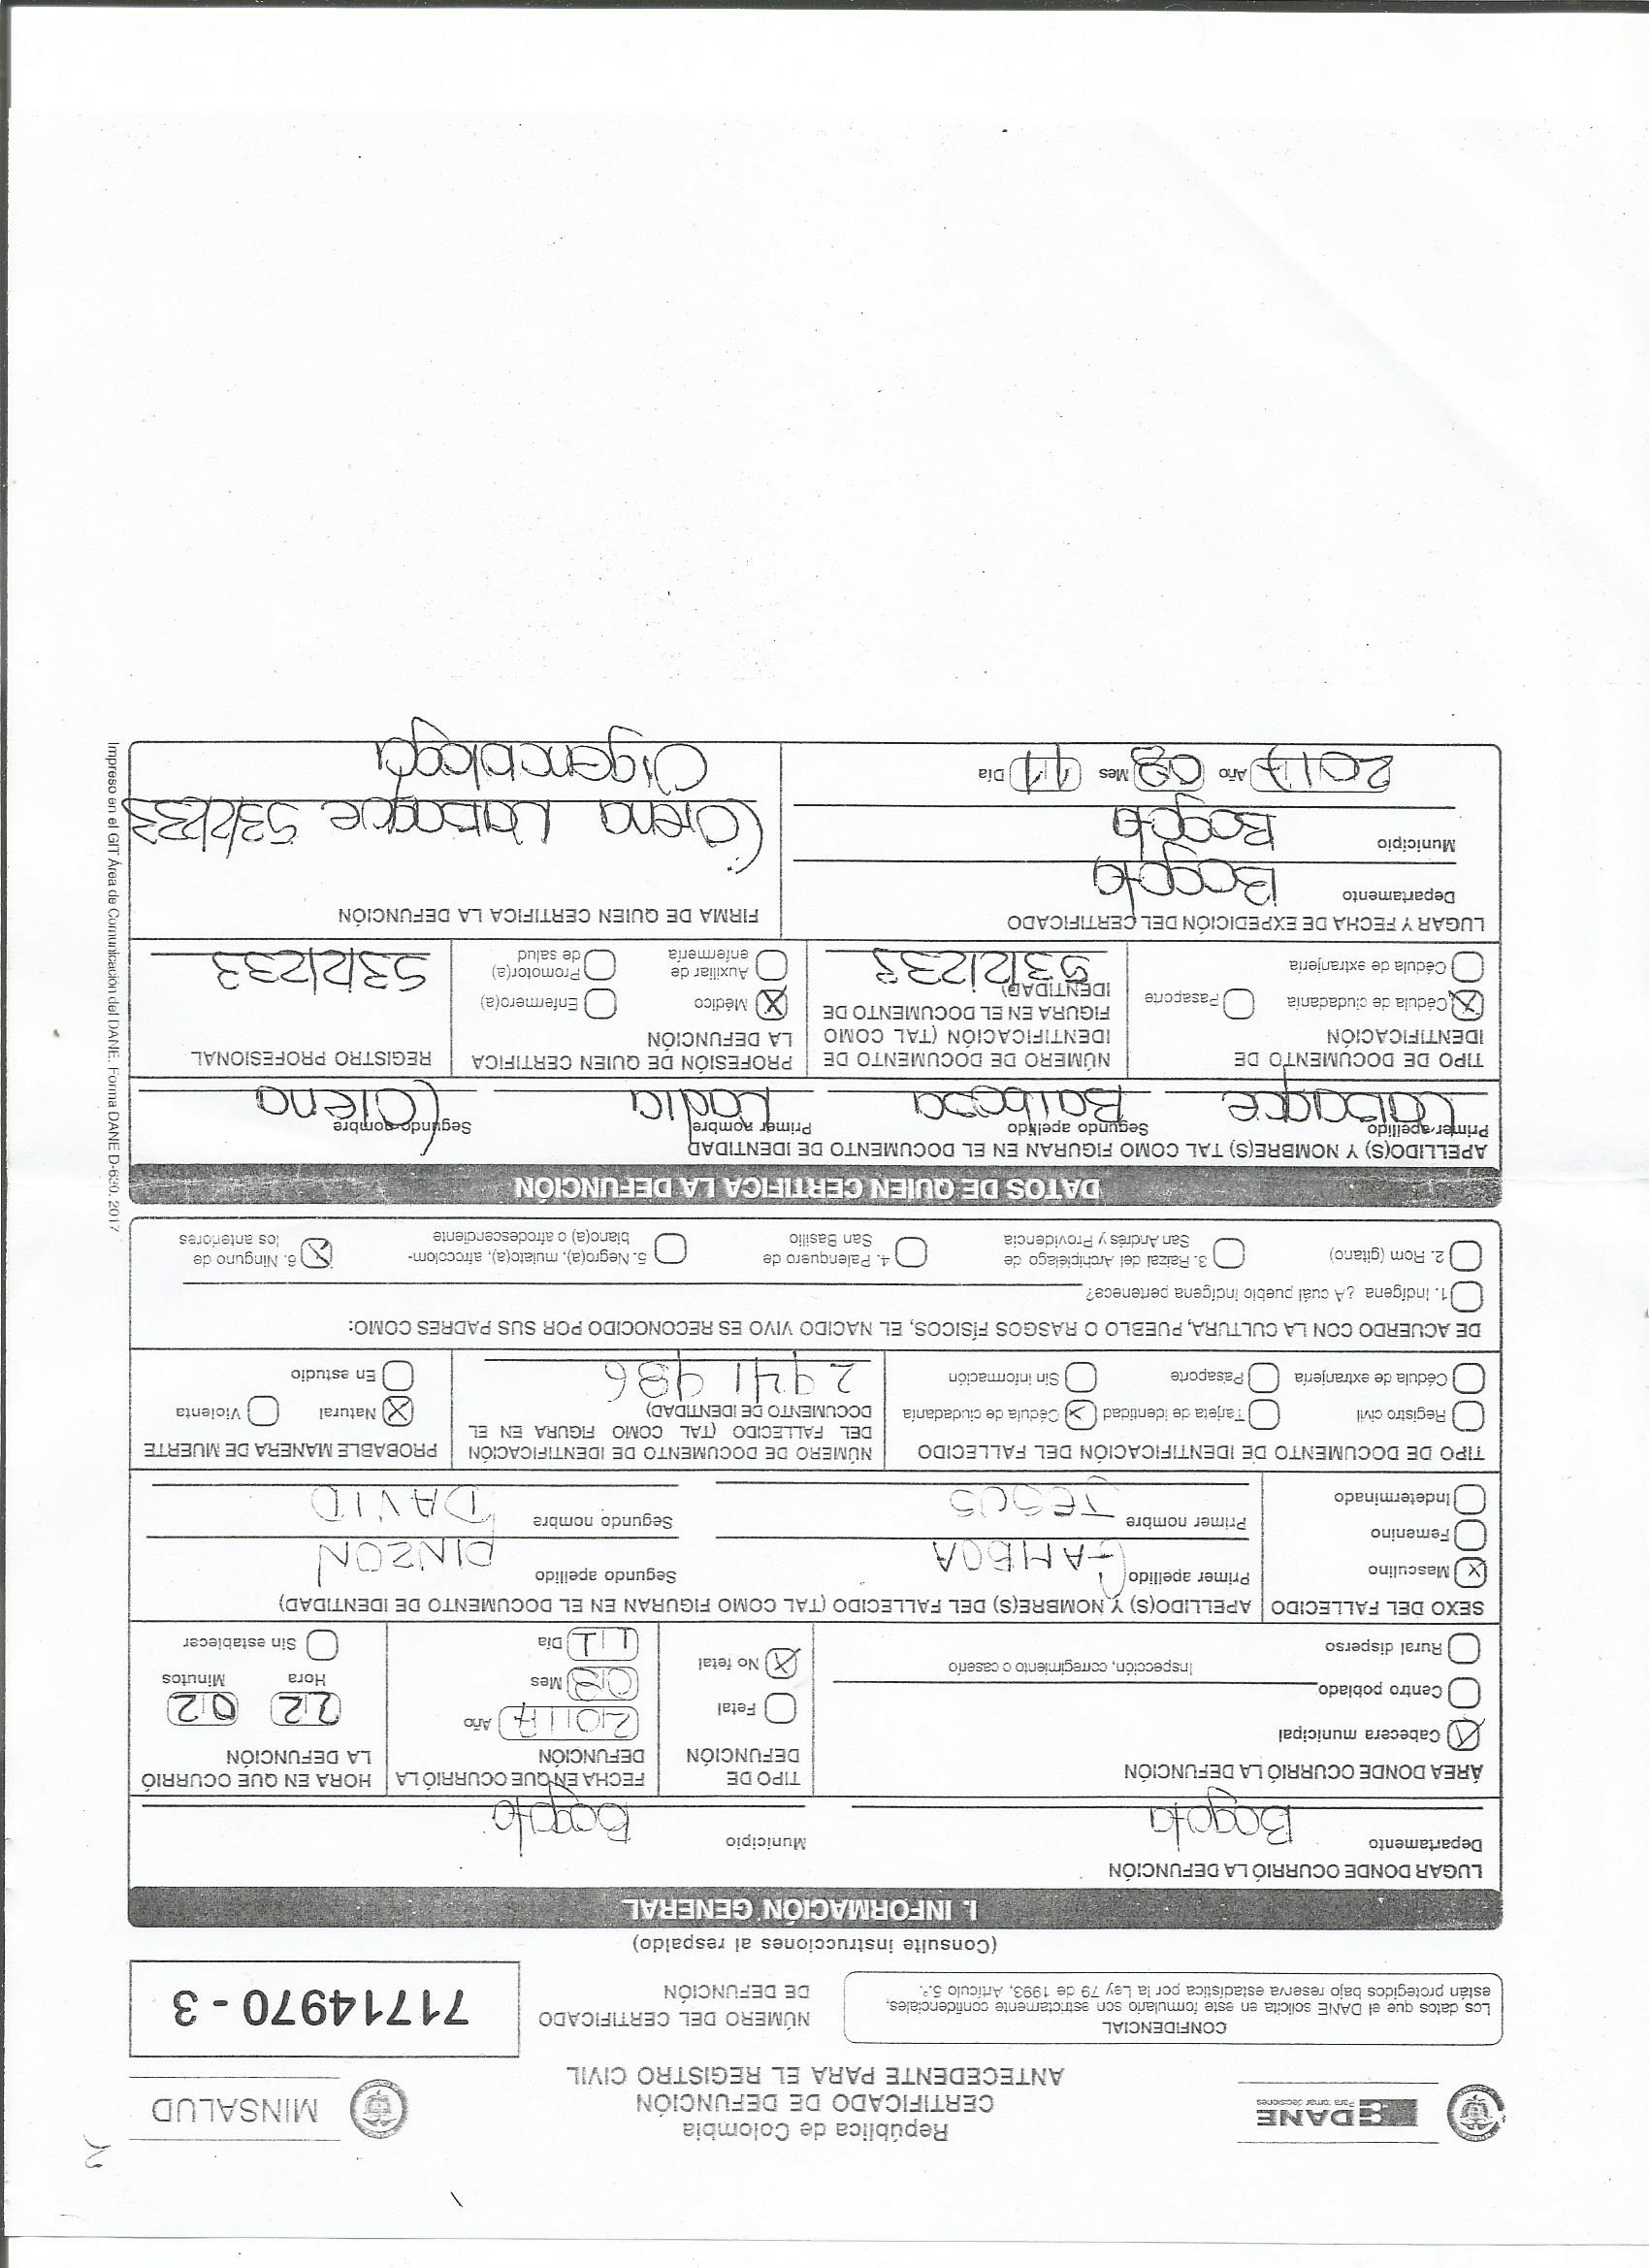 2
República de Colombia
CERTIFICADO DE DEFUNCIÓN
ANTECEDENTE PARA EL REGISTRO CIVIL
DANE
Para tomar decisiones
MINSALUD
CONFIDENCIAL
Los datos que el DANE solicita en este formulario son estrictamente confidenciales,
están protegidos bajo reserva estadística por la Ley 79 de 1993, Artículo 5.º.
NÚMERO DEL CERTIFICADO
DE DEFUNCIÓN
71714970 - 3
(Consulte instrucciones al respaldo)
I. INFORMACIÓN GENERAL
LUGAR DONDE OCURRIÓ LA DEFUNCIÓN
Departamento Bogota Municipio Bogota
ÁREA DONDE OCURRIÓ LA DEFUNCIÓN
X Cabecera municipal
Centro poblado
Inspección, corregimiento o caserío
Rural disperso
TIPO DE
DEFUNCIÓN
Fetal
X No fetal
FECHA EN QUE OCURRIÓ LA
DEFUNCIÓN
2017 Año
Mes
11 Día
HORA EN QUE OCURRIÓ
LA DEFUNCIÓN
22 02
Hora Minutos
Sin establecer
SEXO DEL FALLECIDO
X Masculino
Femenino
Indeterminado
APELLIDO(S) Y NOMBRE(S) DEL FALLECIDO (TAL COMO FIGURAN EN EL DOCUMENTO DE IDENTIDAD)
Primer apellido GAMBOA Segundo apellido PINZON
Primer nombre JESUS Segundo nombre DAVID
TIPO DE DOCUMENTO DE IDENTIFICACIÓN DEL FALLECIDO
Registro civil Tarjeta de identidad X Cédula de ciudadanía
Cédula de extranjería Pasaporte Sin información
NÚMERO DE DOCUMENTO DE IDENTIFICACIÓN
DEL FALLECIDO (TAL COMO FIGURA EN EL
DOCUMENTO DE IDENTIDAD)
2941986
PROBABLE MANERA DE MUERTE
X Natural Violenta
En estudio
DE ACUERDO CON LA CULTURA, PUEBLO O RASGOS FÍSICOS, EL NACIDO VIVO ES RECONOCIDO POR SUS PADRES COMO:
1. Indígena ¿A cuál pueblo indígena pertenece?
2. Rom (gitano)
3. Raizal del Archipiélago de
San Andrés y Providencia
4. Palenquero de
San Basilio
5. Negro(a), mulato(a), afrocolom-
biano(a) o afrodescendiente
X 6. Ninguno de
los anteriores
DATOS DE QUIEN CERTIFICA LA DEFUNCIÓN
APELLIDO(S) Y NOMBRE(S) TAL COMO FIGURAN EN EL DOCUMENTO DE IDENTIDAD
Primer apellido Segundo apellido Primer nombre Segundo nombre
Barbosa Lorena
TIPO DE DOCUMENTO DE
IDENTIFICACIÓN
X Cédula de ciudadanía Pasaporte
Cédula de extranjería
NÚMERO DE DOCUMENTO DE
IDENTIFICACIÓN (TAL COMO
FIGURA EN EL DOCUMENTO DE
IDENTIDAD)
53121233
PROFESIÓN DE QUIEN CERTIFICA
LA DEFUNCIÓN
X Médico Enfermero(a)
Auxiliar de
enfermería
Promotor(a)
de salud
REGISTRO PROFESIONAL
53121233
LUGAR Y FECHA DE EXPEDICIÓN DEL CERTIFICADO
Departamento Bogota
Municipio Bogota
2017 Año Mes 11 Día
FIRMA DE QUIEN CERTIFICA LA DEFUNCIÓN
Lorena 53121233
Impreso en el GIT Área de Comunicación del DANE. Forma DANE D-630, 2017